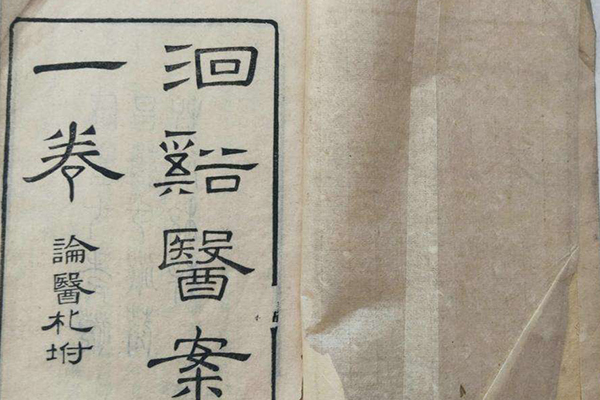 洄谿醫案
一卷
論醫札坿